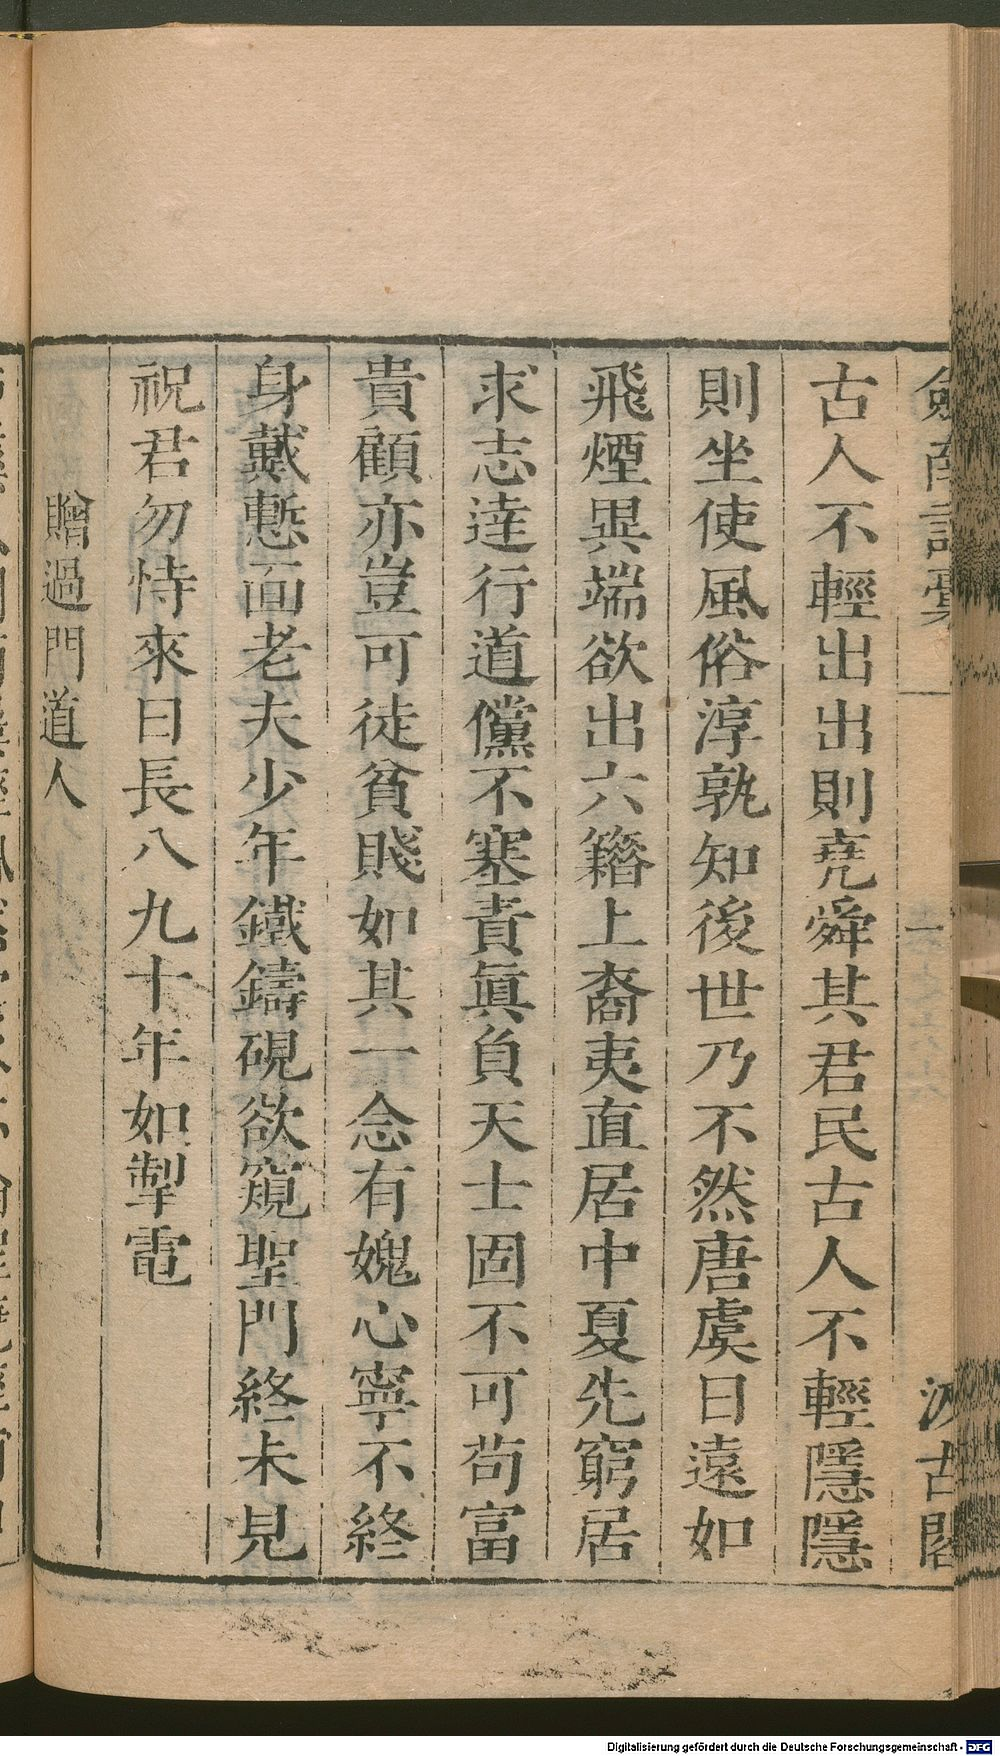 劍南詩藁 一 汲古閣
古人不輕出出則堯舜其君民古人不輕隱隱
則坐使風俗淳孰知後世乃不然唐虞日遠如
飛煙異端欲出六籍上裔夷直居中夏先窮居
求志達行道儻不塞責眞負天士固不可茍富
貴顧亦豈可徒貧賤如其一念有媿心寧不終
身戴慙面老夫少年鐵鑄硯欲窺聖門終未見
祝君勿恃來日長八九十年如掣電
贈過門道人
Digitalisierung gefördert durch die Deutsche Forschungsgemeinschaft - DFG